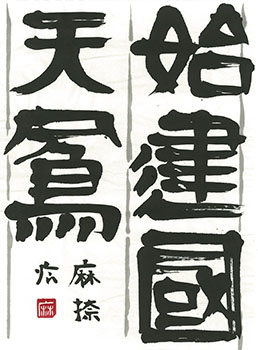 始建國
天鳳
麻捺
麻